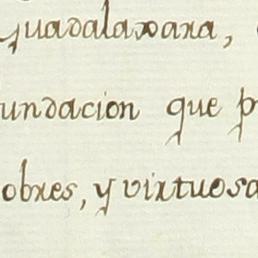 Guadalaxara,
undacion que p
obres, y virtuosa